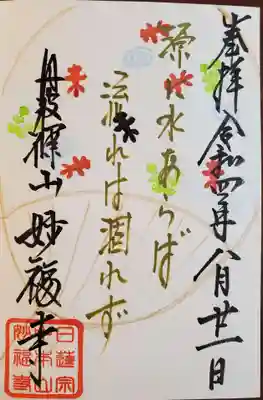 奉拝 令和四年八月廿一日
源に水あらば
流れは涸れず
丹波篠山 妙福寺
日蓮宗
妙福寺